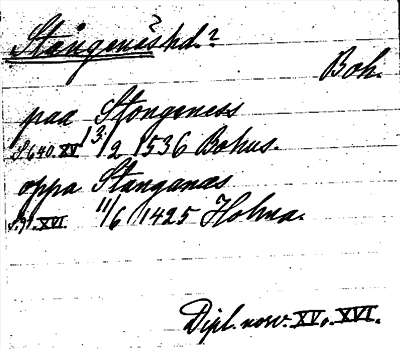 Stångenäs hd.?
Boh.
paa Stongeness
S. 640. XV 13/2 1536 Bohus.
oppa Stanganæs
S. 91. XVI. 11/6 1425 Holma.
Dipl. norv. XV, XVI.